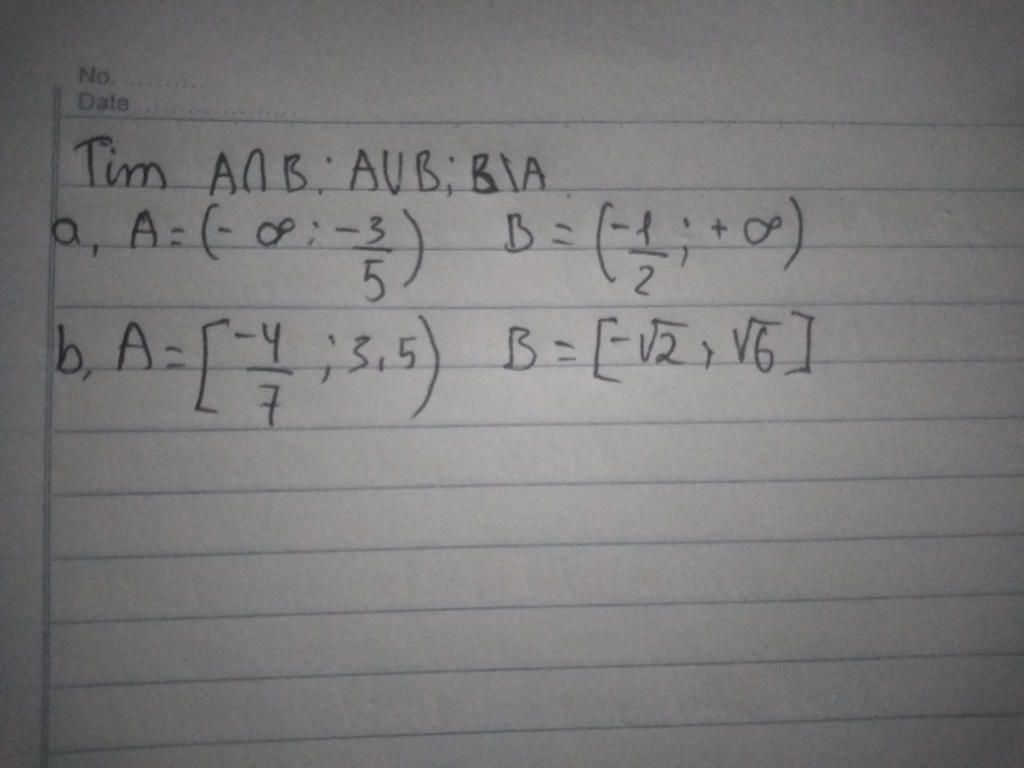 No. ............
Date ........................
Tìm A∩B; A∪B; B\A
a, A = (-∞; -3/5) B = (-1/2; +∞)
b, A = [-4/7; 3,5) B = [-√2, √6]